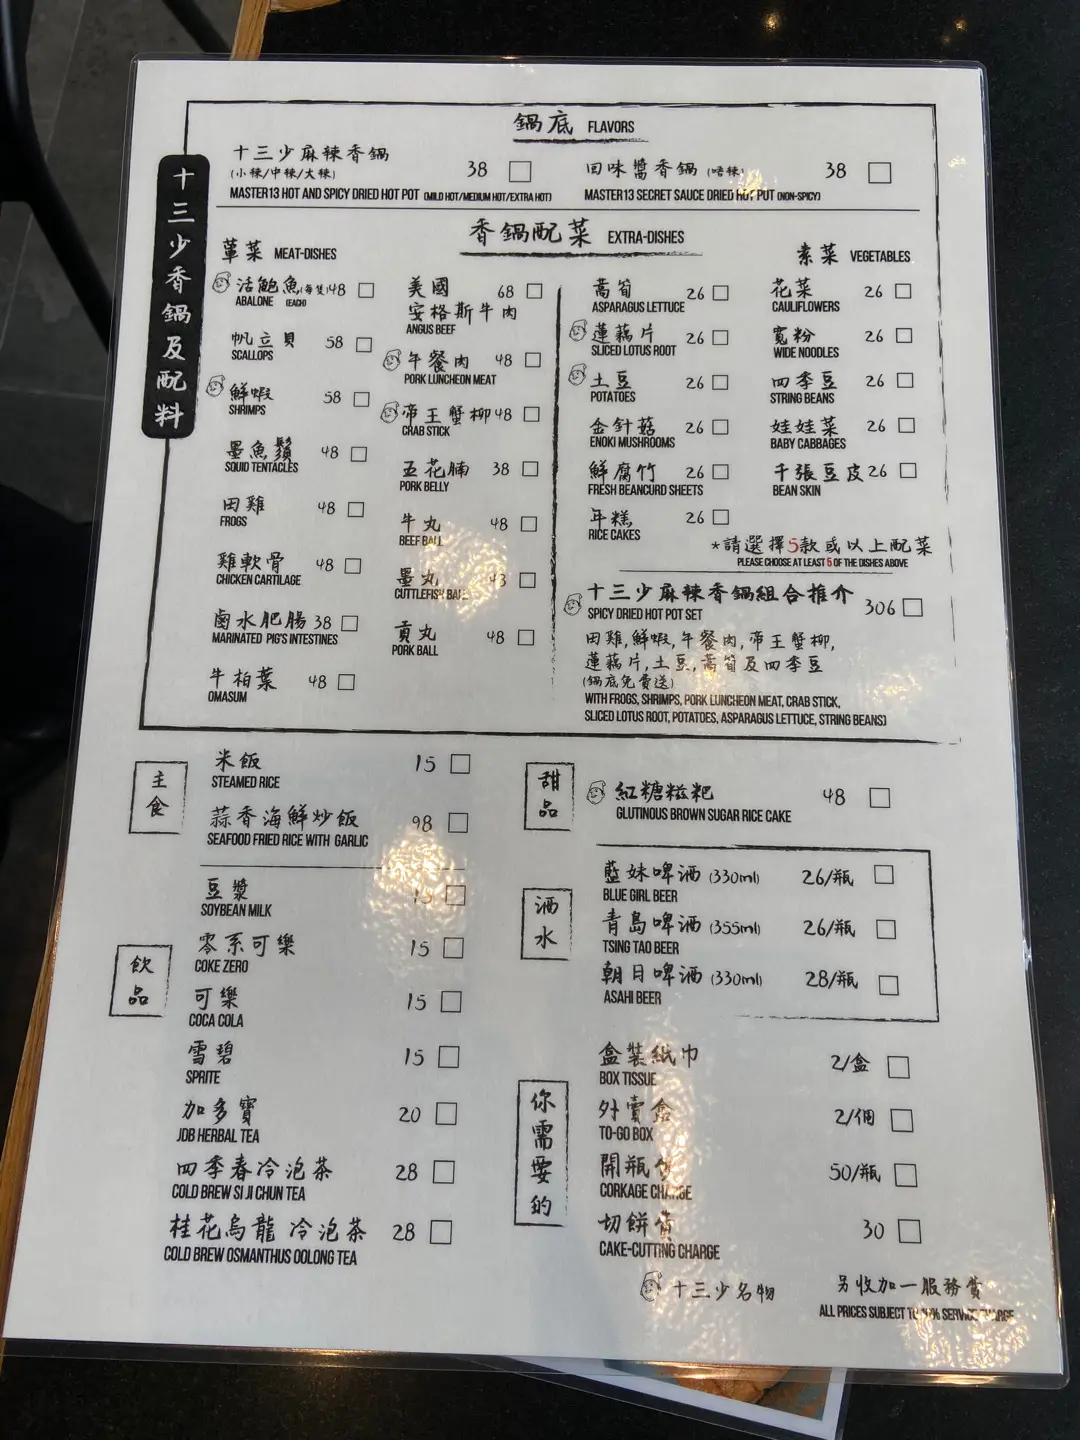 十三少香鍋及配料
鍋底 FLAVORS
十三少麻辣香鍋 38
(小辣/中辣/大辣)
MASTER13 HOT AND SPICY DRIED HOT POT (MILD HOT/MEDIUM HOT/EXTRA HOT)
回味醬香鍋 (唔辣) 38
MASTER13 SECRET SAUCE DRIED HOT PUT (NON-SPICY)
香鍋配菜 EXTRA-DISHES
葷菜 MEAT-DISHES
活鮑魚(每隻) 48
ABALONE (EACH)
帆立貝 58
SCALLOPS
鮮蝦 58
SHRIMPS
墨魚鬚 48
SQUID TENTACLES
田雞 48
FROGS
雞軟骨 48
CHICKEN CARTILAGE
鹵水肥腸 38
MARINATED PIG'S INTESTINES
牛柏葉 48
OMASUM
美國 68
安格斯牛肉
ANGUS BEEF
午餐肉 48
PORK LUNCHEON MEAT
帝王蟹柳 48
CRAB STICK
五花腩 38
PORK BELLY
牛丸 48
BEEF BALL
墨丸
CUTTLEFISH BALL
貢丸 48
PORK BALL
素菜 VEGETABLES
萵筍 26
ASPARAGUS LETTUCE
蓮藕片 26
SLICED LOTUS ROOT
土豆 26
POTATOES
金針菇 26
ENOKI MUSHROOMS
鮮腐竹 26
FRESH BEANCURD SHEETS
年糕 26
RICE CAKES
花菜 26
CAULIFLOWERS
寬粉 26
WIDE NOODLES
四季豆 26
STRING BEANS
娃娃菜 26
BABY CABBAGES
千張豆皮 26
BEAN SKIN
*請選擇5款或以上配菜
PLEASE CHOOSE AT LEAST 5 OF THE DISHES ABOVE
十三少麻辣香鍋組合推介 306
SPICY DRIED HOT POT SET
田雞,鮮蝦,午餐肉,帝王蟹柳,
蓮藕片,土豆,萵筍及四季豆
(鍋底免費送)
WITH FROGS, SHRIMPS, PORK LUNCHEON MEAT, CRAB STICK,
SLICED LOTUS ROOT, POTATOES, ASPARAGUS LETTUCE, STRING BEANS)
主食
米飯 15
STEAMED RICE
蒜香海鮮炒飯 98
SEAFOOD FRIED RICE WITH GARLIC
飲品
豆漿 15
SOYBEAN MILK
零系可樂 15
COKE ZERO
可樂 15
COCA COLA
雪碧 15
SPRITE
加多寶 20
JDB HERBAL TEA
四季春冷泡茶 28
COLD BREW SI JI CHUN TEA
桂花烏龍 冷泡茶 28
COLD BREW OSMANTHUS OOLONG TEA
甜品
紅糖糍粑 48
GLUTINOUS BROWN SUGAR RICE CAKE
酒水
藍妹啤酒 (330ml) 26/瓶
BLUE GIRL BEER
青島啤酒 (355ml) 26/瓶
TSING TAO BEER
朝日啤酒 (330ml) 28/瓶
ASAHI BEER
你需要的
盒裝紙巾 2/盒
BOX TISSUE
外賣盒 2/個
TO-GO BOX
開瓶 50/瓶
CORKAGE CHARGE
切餅費 30
CAKE-CUTTING CHARGE
十三少名物
另收加一服務費
ALL PRICES SUBJECT TO 10% SERVICE CHARGE